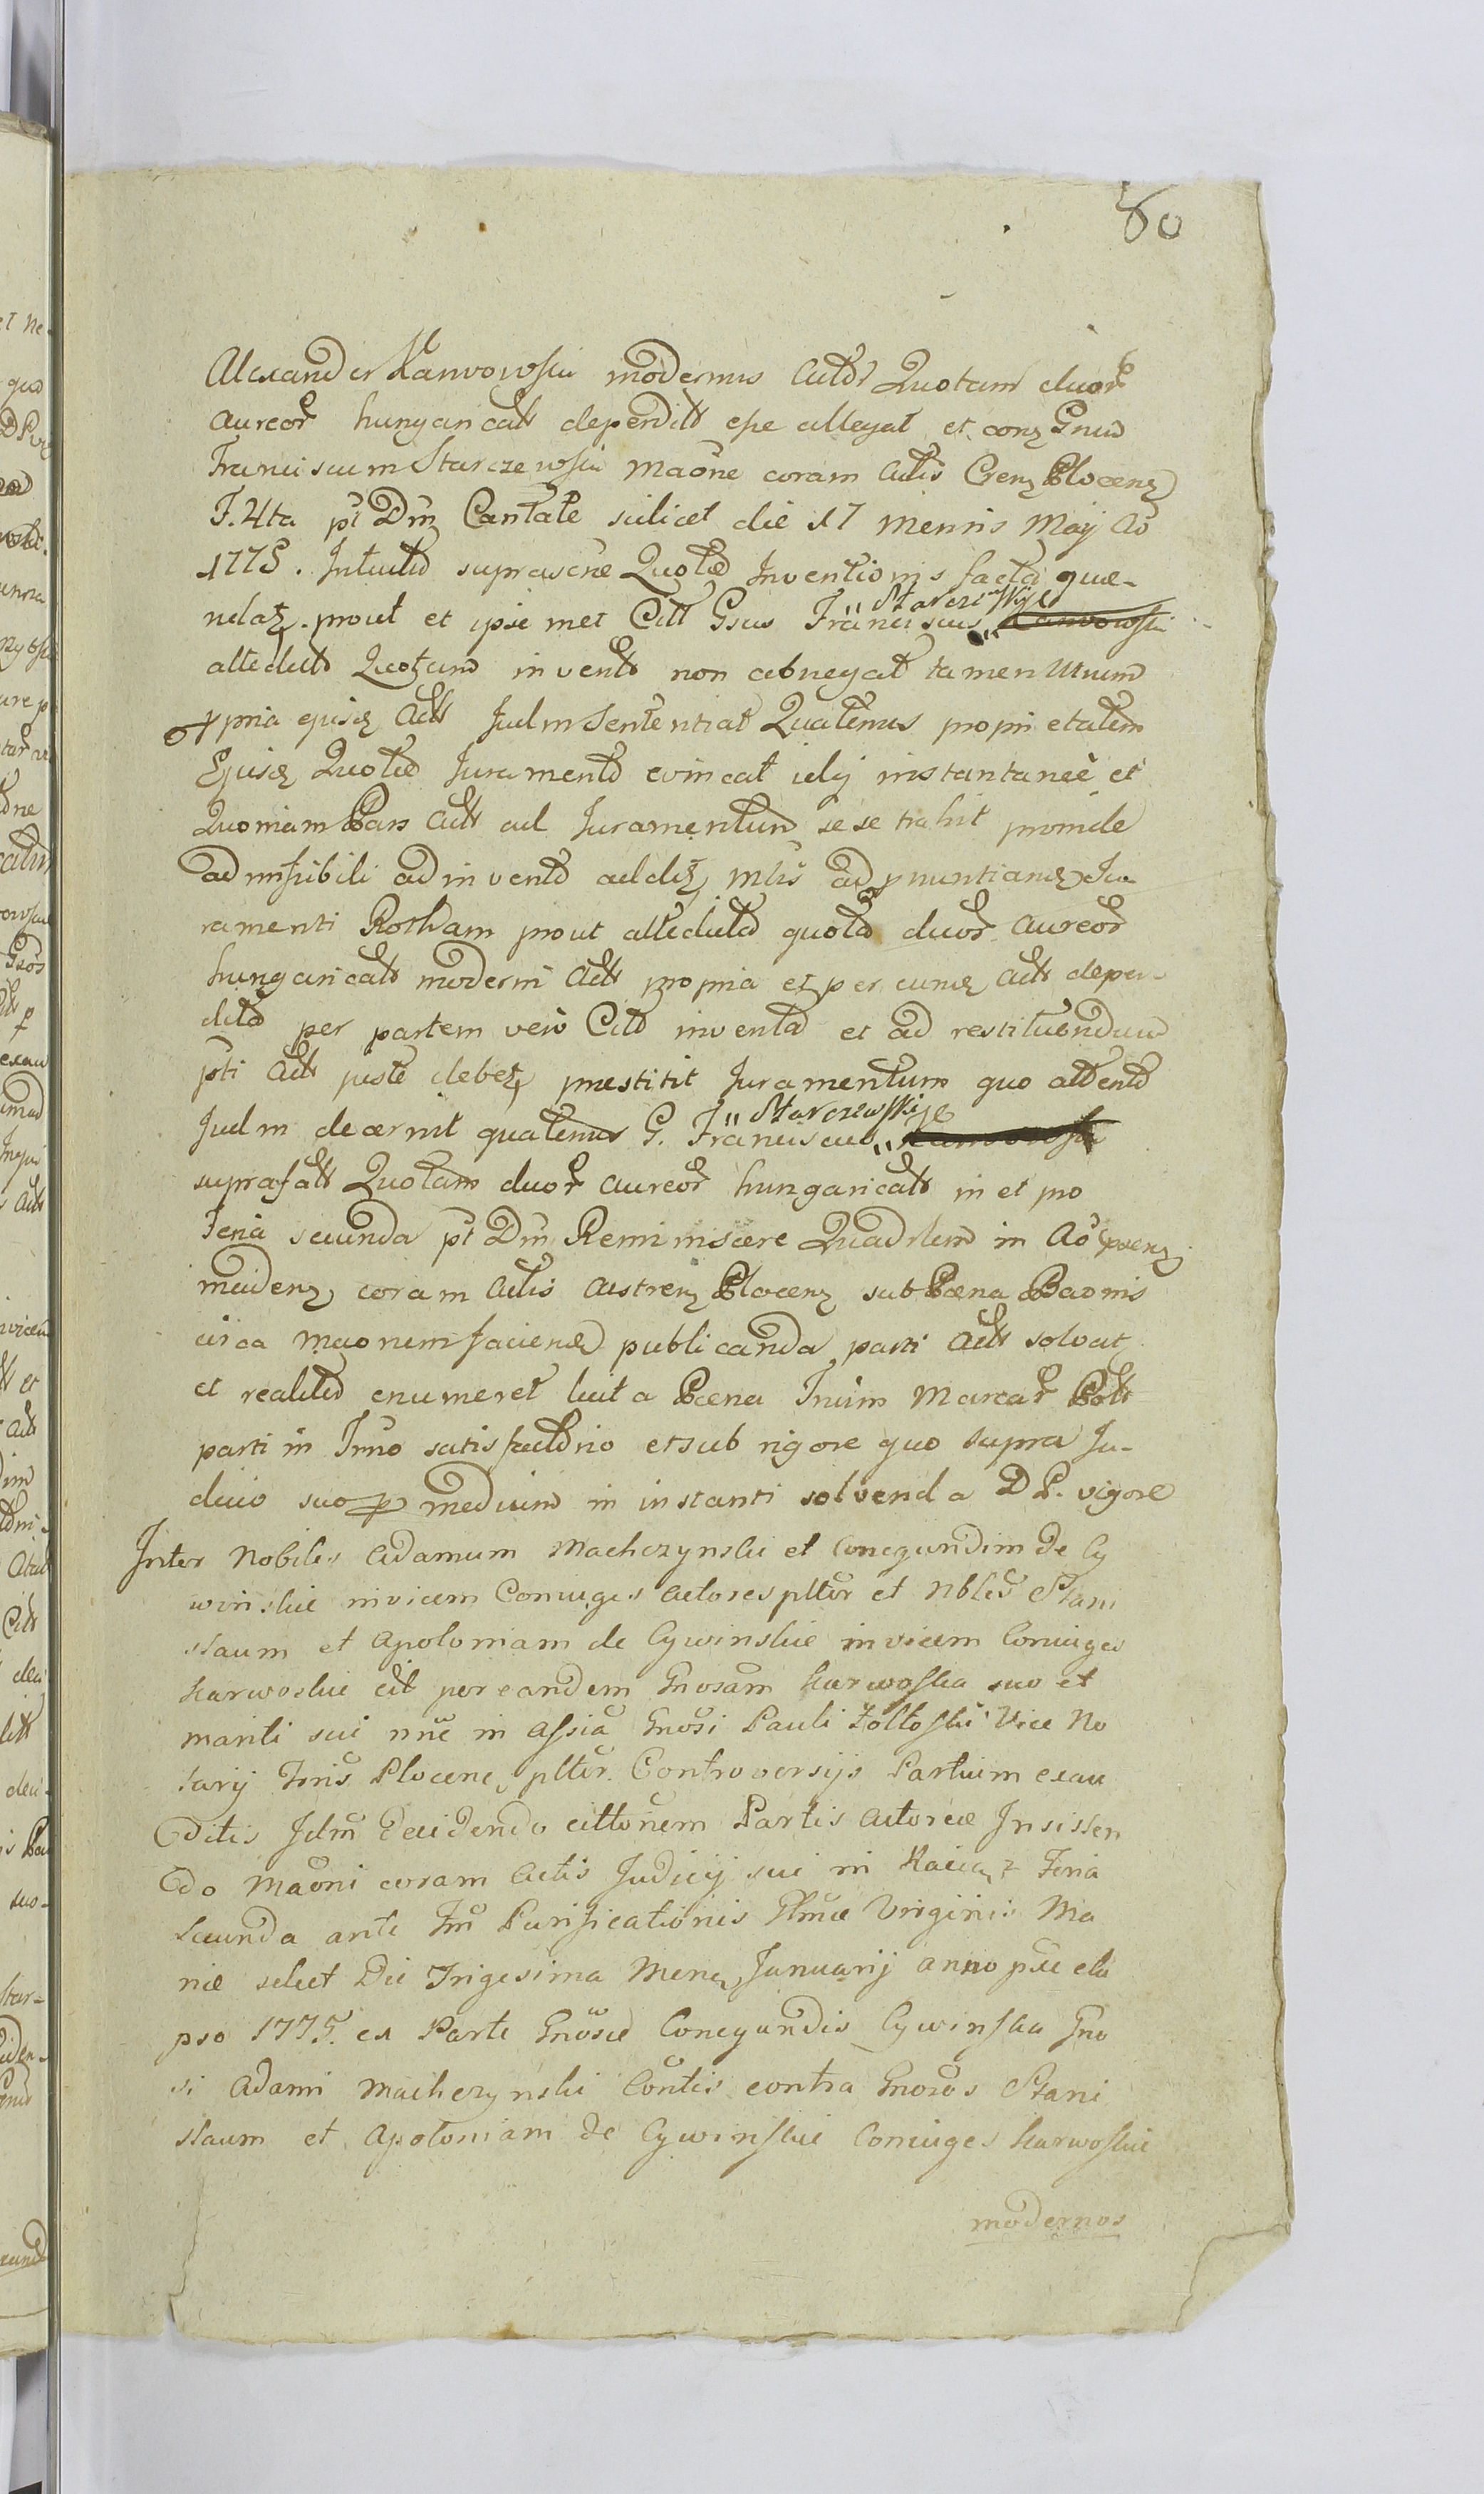 80
Alexander Karwowski modernus Actor Quotam duor
aureor hungaricat deperdit esse allegat et conq Gnum
Franciscum Starczewski Maone coram Actis Cren Plocenz
F. 4ta pt Dm Cantate scilicet die 17 Mensis Maij Ao
1775. Intuitu suprascrae Quotae Inventionis facta quae-
relaz. prout et ipse met Citt Gsus Franciscus Starczewski Karwowski
attedictd Quotam invent non abnegat tamen Utrum
ppria ejusq Act Judm Sententiat Quatenus proprietatem
Ejusq Quotae Juramento evincat idq instantanee et
Quoniam Pars Act ad Juramentum sese trahit proinde
admissibili adinvento addit mlis ad pnuntiand Ju
ramenti Rotham prout attedicta quota duor aureor
hungaricat moderni Act propria et per eundq Act deper-
dita per partem vero Citt inventa et ad restituendum
pti Act juste debet praestitit Juramentum quo attento
Judm decernit quatenus G. Franciscus Starczewski Karwowski
suprafatt Quotam duor aureor hungaricat in et pro
Feria secunda pt Dm Reminiscere Quadrlem in Ao praenz
inciden coram Actis Castren Plocenz sub Paena Baonis
circa Maonem faciend publicanda parti Act solvat
et realitd enumeret luita Paena Trium Marcar Polt
parti in Inno satisfactorio et sub rigore quo supra Ju-
dicio suo p medium in instanti solvenda D P. vigore
Inter Nobiles Adamum Machczynski et Conegundim de Cy
winskie invicem Coniuges Actores plter et Nbles Stani
slaum et Apoloniam de Cywinskie invicem Coniuges
Karwoskie cit per eandem Gnosam Karwoska suo et
mariti sui nne in assia Gnosi Pauli Zołtoski Vice No
tarij Tris Plocene plter. Controversijs Partium exau
ditis Jdm Decidendo cittonem Partis Actoreae Insisten
do Maoni coram Actis Judicij sui in Raciąz Feria
Secunda ante Fm Purificationis Bmae Virginis Ma
riae scilect Die Trigesima Mens Januarij anno pte ela
pso 1775. ex Parte Gnosae Conegundis Cywinska Gno
si Adami Machczynski Contis contra Gnosos Stani
slaum et Apoloniam de Cywinskie Coniuges Karwoskie
modernos